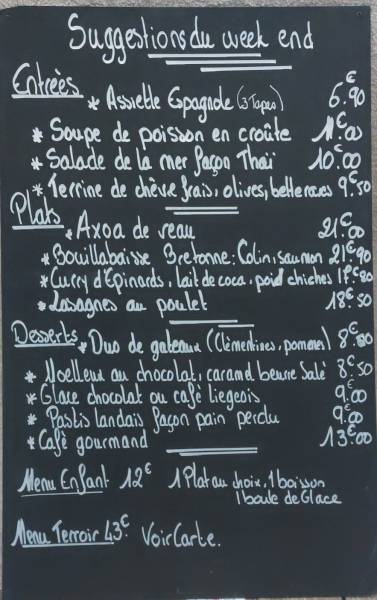 Suggestions du week end
Entrées
* Assiette Espagnole (3 Tapas) 6€90
* Soupe de poisson en croûte 11€00
* Salade de la mer façon Thaï 10€00
* Terrine de chèvre frais, olives, betteraves 9€50
Plats
* Axoa de veau 21€00
* Bouillabaisse Bretonne: Colin, saumon 21€90
* Curry d'Epinards, lait de coco, pois chiches 17€80
* Lasagnes au poulet 18€50
Desserts
* Duo de gateaux (Clémentines, pommes) 8€80
* Moelleux au chocolat, caramel beurre Salé 8€50
* Glace chocolat ou café liegeois 9€00
* Pastis landais façon pain perdu 9€00
* Café gourmand 13€00
Menu Enfant 12€ 1 Plat au choix, 1 boisson
1 boule de Glace
Menu Terroir 43€ Voir Carte.